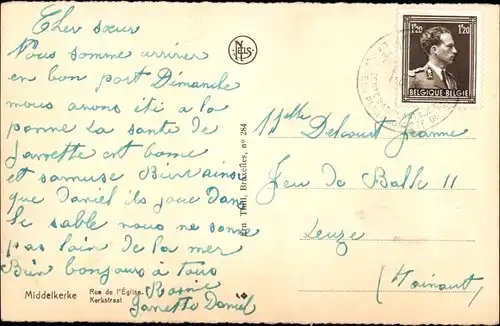 Cher sœur
Vous somme arriver
en bon port Dimanche
nous avons iti a la
panne La sante de
Janette est bonne
et samuse Bien ainsi
que Daniel ils joue dans
le sable nous ne somme
pas loin de la mer
Bien bonjours a tous
Rosine
Janette Daniel
Middelkerke
Rue de l'Église.
Kerkstraat
NELS
Ern. Thill, Bruxelles, n° 284
1F20 1F20
BELGIQUE·BELGIE
Mlle Delcourt Jeanne
Jeu de Balle 11
Leuze
(Hainaut)